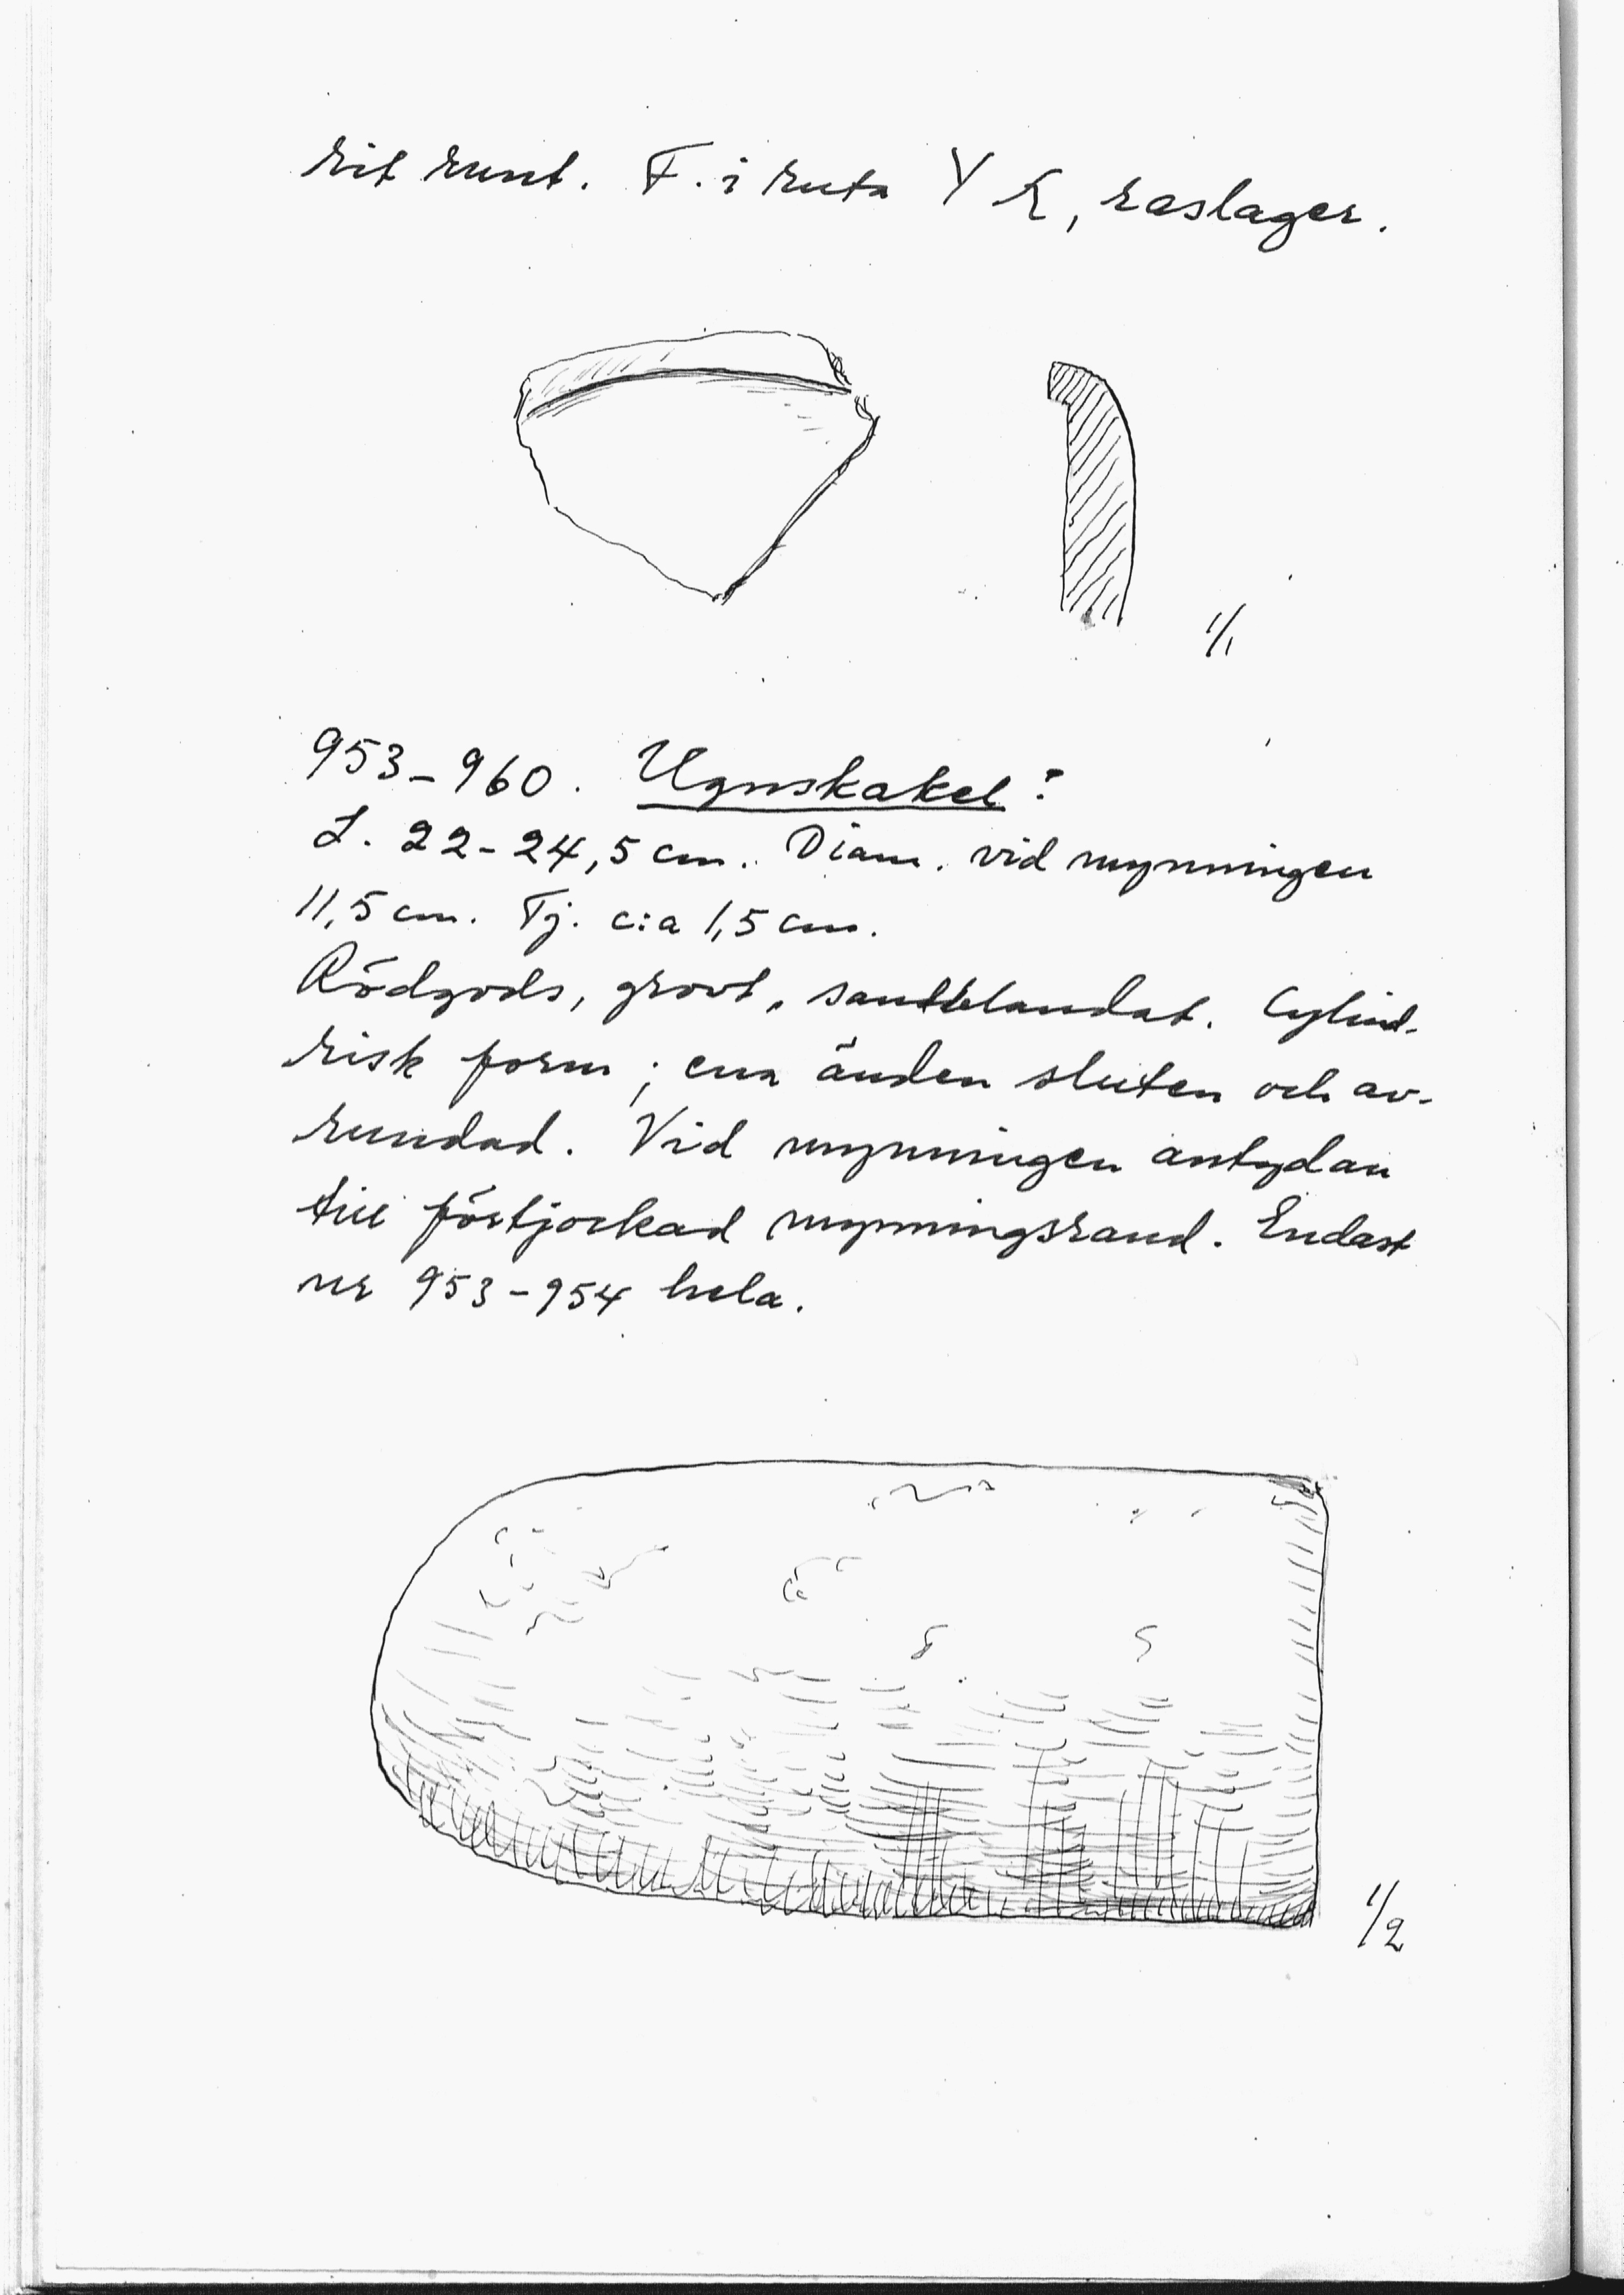 rit runt. F. i ruta Y K, raslager.
1/1
953-960. Ugnskakel?
L. 22-24,5 cm. Diam. vid mynningen
11,5 cm. Tj. c:a 1,5 cm.
Rödgods, grovt, sandblandat. Cylind-
risk form; ena änden sluten och av-
rundad. Vid mynningen antydan
till förtjockad mynningsrand. Endast
nr 953-954 hela.
1/2